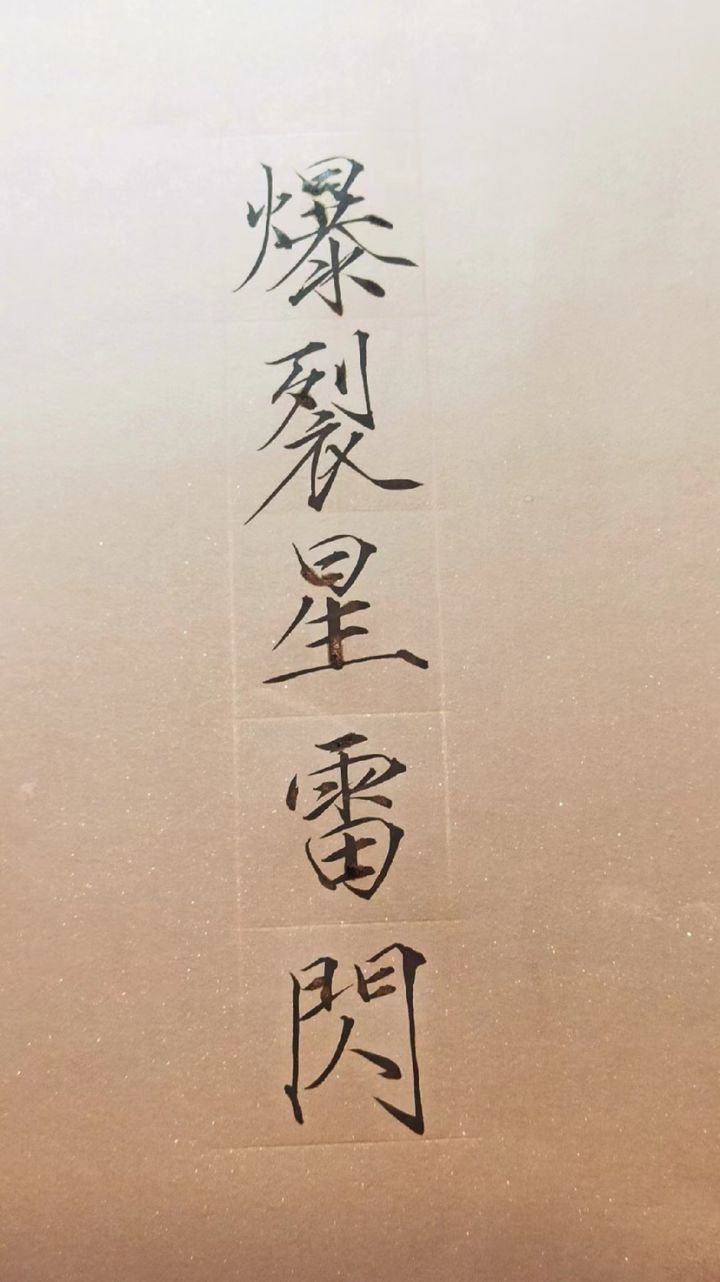 爆裂星雷閃